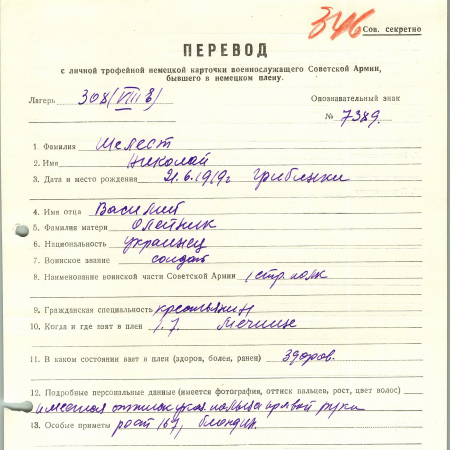 346
Сов. секретно
ПЕРЕВОД
с личной трофейной немецкой карточки военнослужащего Советской Армии,
бывшего в немецком плену.
Лагерь 308 (VIII Е) Опознавательный знак
№ 7389.
1. Фамилия Шелест
2. Имя Николай
3. Дата и место рождения 21.6.1919г Грибинки
4. Имя отца Василий
5. Фамилия матери Олейник
6. Национальность Украинец
7. Воинское звание солдат
8. Наименование воинской части Советской Армии 1 стр. полк
9. Гражданская специальность крестьянин
10. Когда и где взят в плен
11. В каком состоянии взят в плен (здоров, болен, ранен) здоров.
12. Подробные персональные данные (имеется фотография, оттиск пальцев, рост, цвет волос)
имеется оттиск указ. пальца правой руки
13. Особые приметы рост 167, блондин.